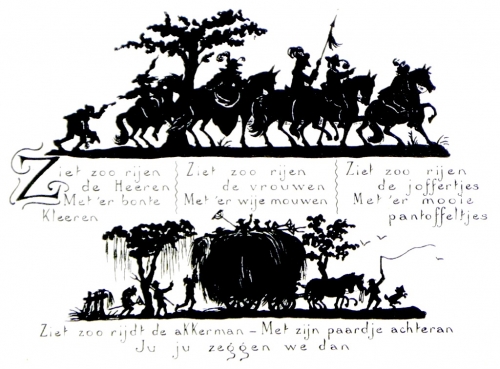 Ziet zoo rijen
de Heeren
Met 'er bonte
Kleeren
Ziet zoo rijen
de vrouwen
Met 'er wije mouwen
Ziet zoo rijen
de joffertjes
Met 'er mooie
pantoffeltjes
Ziet zoo rijdt de akkerman - Met zijn paardje achteran
Ju ju zeggen we dan